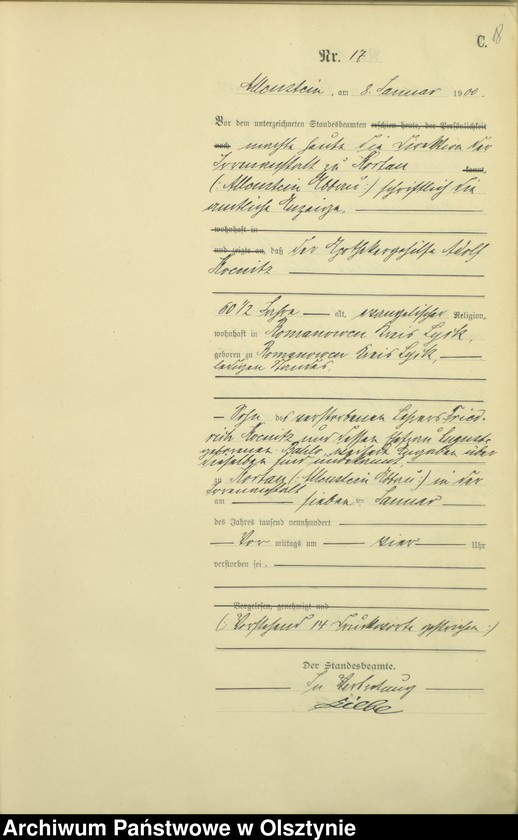 C. 18
Nr. 17
Allenstein, am 8. Januar 1900.
Vor dem unterzeichneten Standesbeamten erschien heute, der Persönlichkeit
nach, machte heute die Direktion der
Irrenanstalt zu Kortau kannt,
(: Allenstein Abbau :) schriftlich die
amtliche Anzeige,
wohnhaft in
und zeigte an, daß der Apothekergehilfe Adolf
60 1/2 Jahre alt, evangelischer Religion,
wohnhaft in Romanowen Kreis Lyck,
geboren zu Romanowen Kreis Lyck,
ledigen Standes,
Sohn des verstorbenen Lehrers Fried-
rich und dessen Ehefrau Auguste
geborenen weitere Angaben über
dieselben sind unbekannt,
zu Kortau (: Allenstein Abbau :) in der
Irrenanstalt
am sieben ten Januar
des Jahres tausend neunhundert
Vor mittags um vier Uhr
verstorben sei.
Vorgelesen, genehmigt und
(: Vorstehend 14 Druckworte gestrichen :)
Der Standesbeamte.
In Vertretung
Archiwum Państwowe w Olsztynie